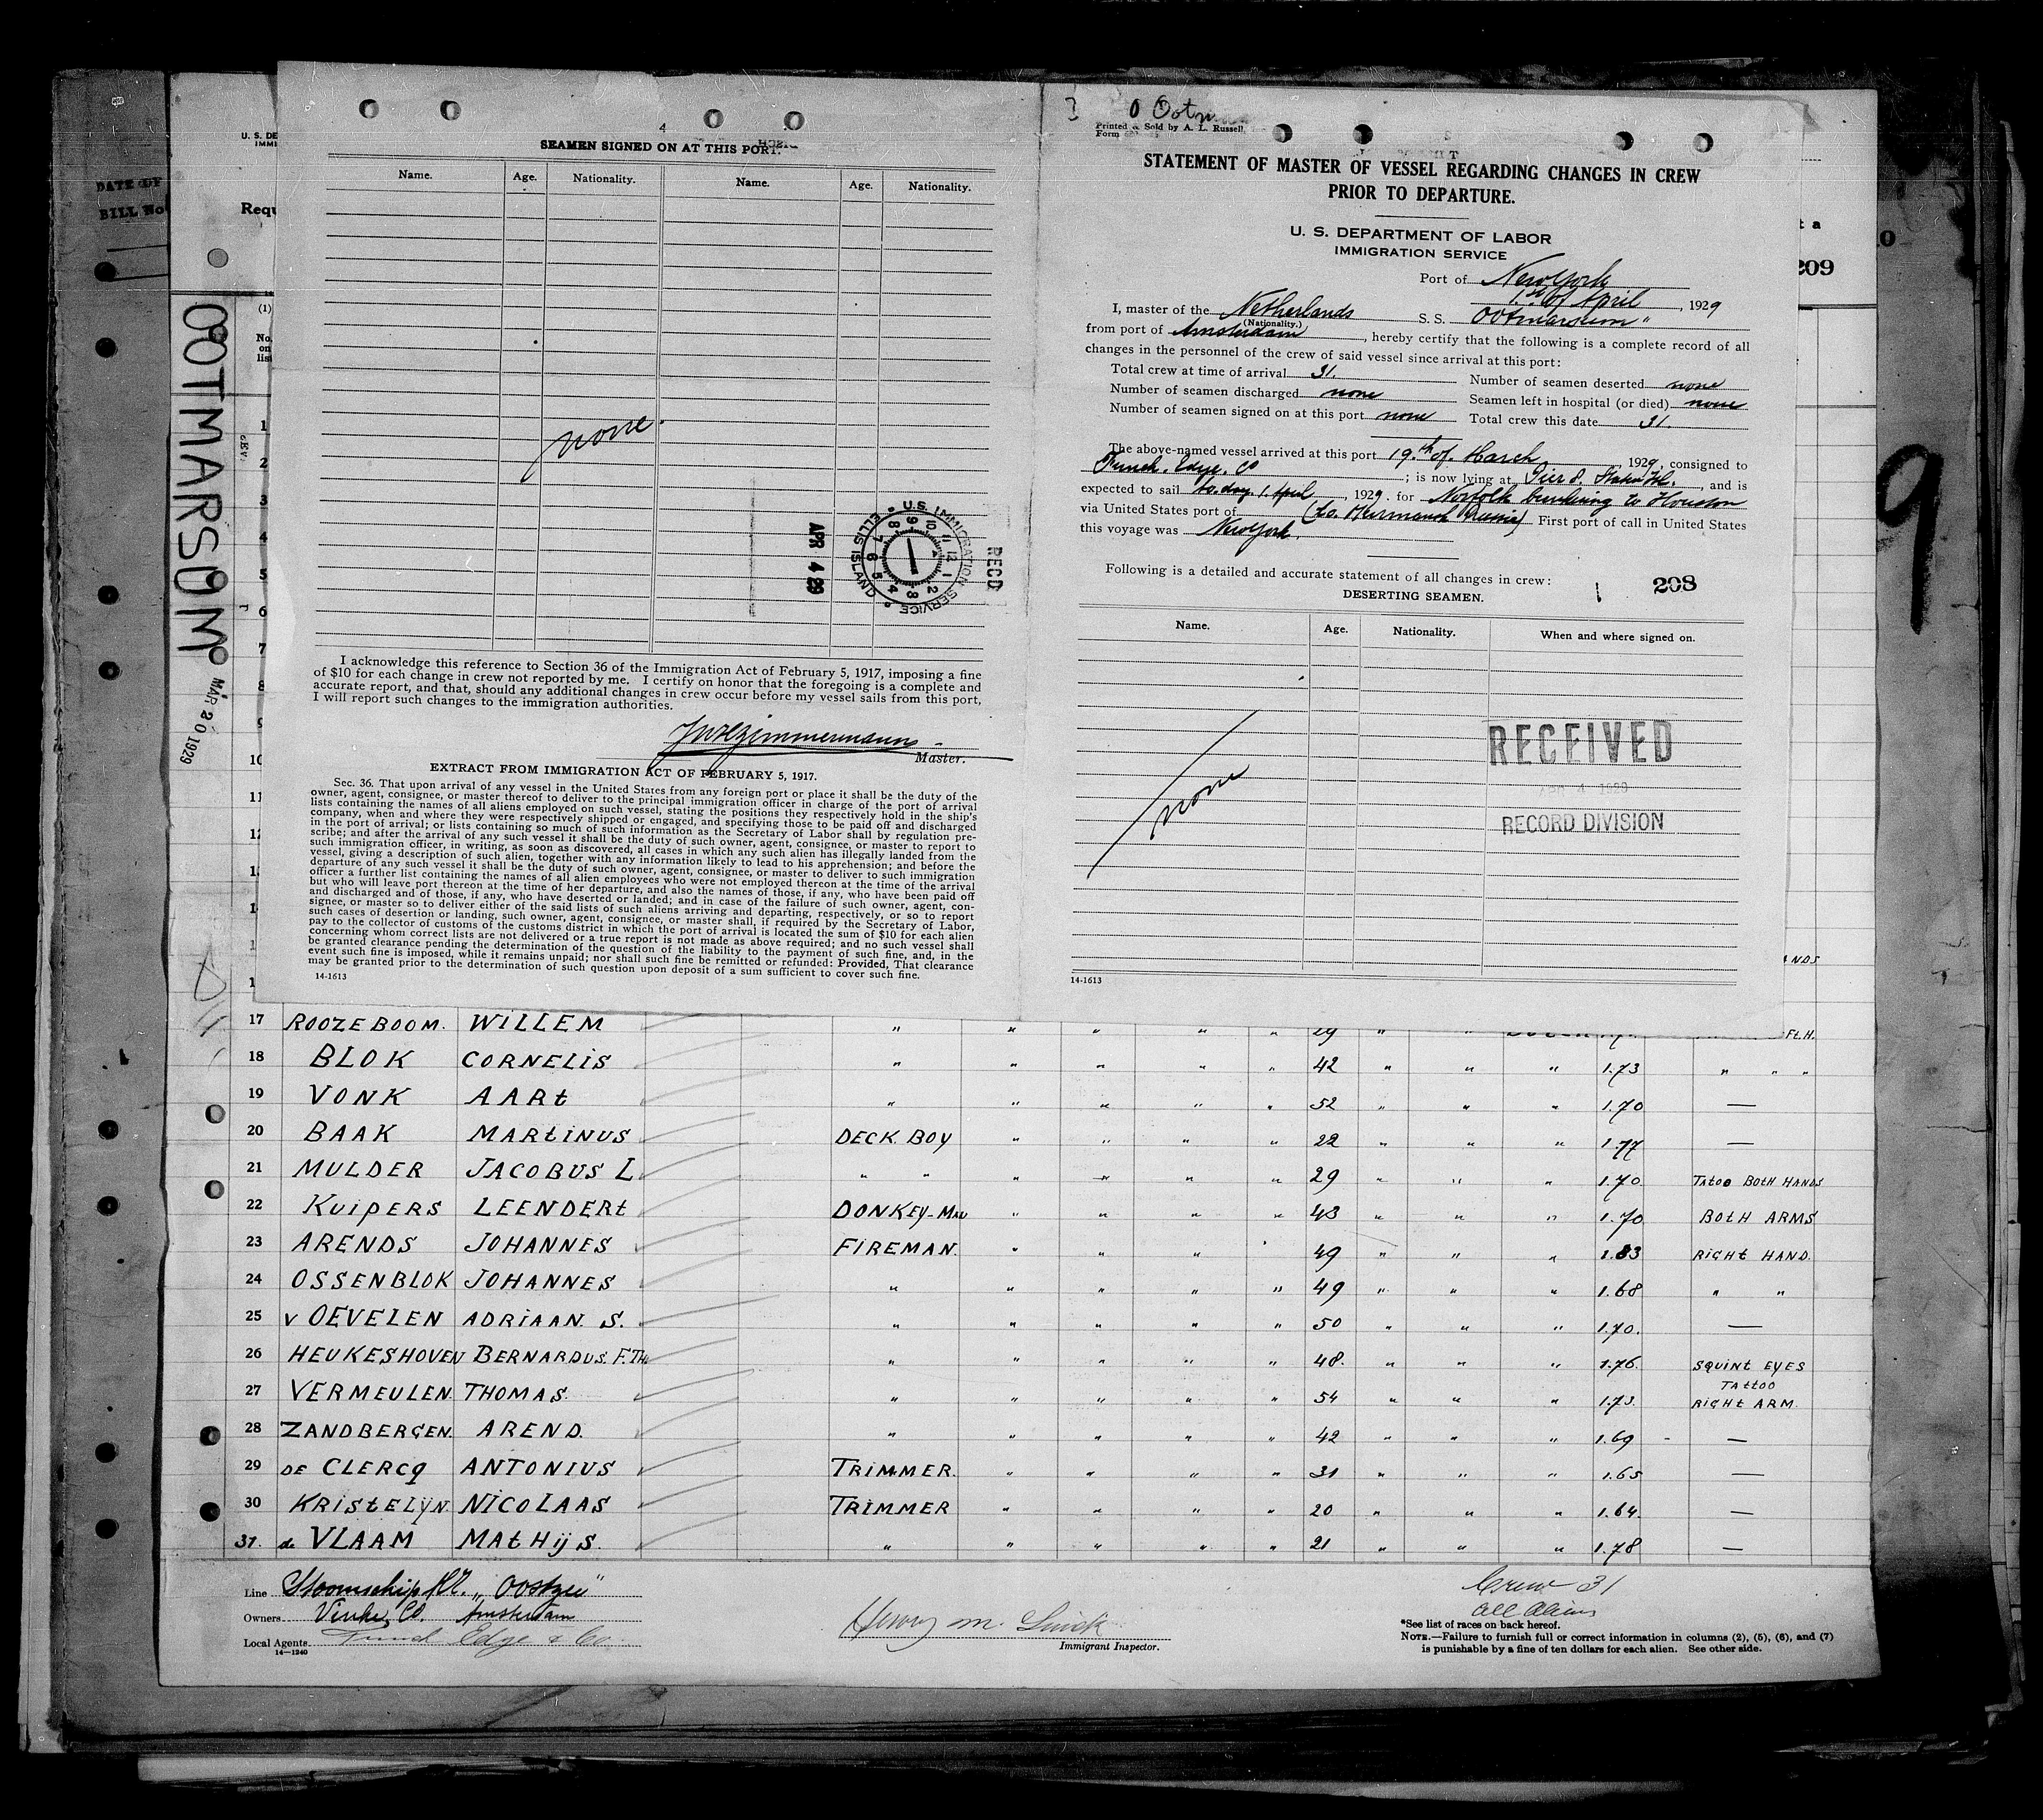 DATE OF
BILL No
U. S. DE
IMMI
Requ
OOTMARSOM
MAR 20 1929
(1)
No.
on
list
1
2
3
4
5
6
7
8
9
10
11
SEAMEN SIGNED ON AT THIS PORT.
Name. Age. Nationality. Name. Age. Nationality.
none.
RECD
APR 4 29
U.S. IMMIGRATION SERVICE • ELLIS ISLAND •
I acknowledge this reference to Section 36 of the Immigration Act of February 5, 1917, imposing a fine
of $10 for each change in crew not reported by me. I certify on honor that the foregoing is a complete and
accurate report, and that, should any additional changes in crew occur before my vessel sails from this port,
I will report such changes to the immigration authorities.
Master.
EXTRACT FROM IMMIGRATION ACT OF FEBRUARY 5, 1917.
Sec. 36. That upon arrival of any vessel in the United States from any foreign port or place it shall be the duty of the
owner, agent, consignee, or master thereof to deliver to the principal immigration officer in charge of the port of arrival
lists containing the names of all aliens employed on such vessel, stating the positions they respectively hold in the ship's
company, when and where they were respectively shipped or engaged, and specifying those to be paid off and discharged
in the port of arrival; or lists containing so much of such information as the Secretary of Labor shall by regulation pre-
scribe; and after the arrival of any such vessel it shall be the duty of such owner, agent, consignee, or master to report to
such immigration officer, in writing, as soon as discovered, all cases in which any such alien has illegally landed from the
vessel, giving a description of such alien, together with any information likely to lead to his apprehension; and before the
departure of any such vessel it shall be the duty of such owner, agent, consignee, or master to deliver to such immigration
officer a further list containing the names of all alien employees who were not employed thereon at the time of the arrival
but who will leave port thereon at the time of her departure, and also the names of those, if any, who have been paid off
and discharged and of those, if any, who have deserted or landed; and in case of the failure of such owner, agent, con-
signee, or master so to deliver either of the said lists of such aliens arriving and departing, respectively, or so to report
such cases of desertion or landing, such owner, agent, consignee, or master shall, if required by the Secretary of Labor,
pay to the collector of customs of the customs district in which the port of arrival is located the sum of $10 for each alien
concerning whom correct lists are not delivered or a true report is not made as above required; and no such vessel shall
be granted clearance pending the determination of the question of the liability to the payment of such fine, and, in the
event such fine is imposed, while it remains unpaid; nor shall such fine be remitted or refunded: Provided, That clearance
may be granted prior to the determination of such question upon deposit of a sum sufficient to cover such fine.
14-1613
Printed & Sold by A. L. Russell,
Form
STATEMENT OF MASTER OF VESSEL REGARDING CHANGES IN CREW
PRIOR TO DEPARTURE.
U. S. DEPARTMENT OF LABOR
IMMIGRATION SERVICE
Port of New York
1st of April, 1929
I, master of the Netherlands S. S. Ootmarsum"
(Nationality.)
from port of Amsterdam, hereby certify that the following is a complete record of all
changes in the personnel of the crew of said vessel since arrival at this port:
Total crew at time of arrival 31. Number of seamen deserted none
Number of seamen discharged none Seamen left in hospital (or died) none
Number of seamen signed on at this port none Total crew this date 31.
The above-named vessel arrived at this port 19.th of. March, 1929, consigned to
Funch. Edye. Co; is now lying at Pier 8. Staten Isl., and is
expected to sail to day. 1. April, 1929. for Norfolk bunkering to Houston
via United States port of (to. Murmansk Russia) First port of call in United States
this voyage was New York.
Following is a detailed and accurate statement of all changes in crew:
208
DESERTING SEAMEN.
Name. Age. Nationality. When and where signed on.
none
RECEIVED
RECORD DIVISION
14-1613
t a
209
9
NDS
17 ROOZEBOOM. WILLEM " " " " " 29 " " FL.H.
18 BLOK CORNELIS " " " " " 42 " " " 1.73 " " "
19 VONK AARt " " " " " 52 " " " 1.70 —
20 BAAK MARtINUS DECK BOY " " " " 22 " " " 1.77 —
21 MULDER JACOBUS L " " " " " " 29 " " " 1.70 TAtoo BOtH HANDS
22 KuipERS LEENDERt DONKEY-MAN " " " " 43 " " " 1.70 BOtH ARMS
23 ARENDS JOHANNES FIREMAN. " " " " 49 " " " 1.83 RIGHt HAND.
24 OSSENBLOK JOHANNES " " " " " 49 " " " 1.68 " "
25 v OEVELEN ADRIAAN. S. " " " " " 50 " " " 1.70. —
26 HEUKESHOVEN BERNARDUS. F.TH. " " " " " 48. " " " 1.76. SQUINT EYES
27 VERMEULEN. THOMAS. " " " " " 54 " " " 1.73. TAttOO RIGHt ARM.
28 ZANDBERGEN. AREND. " " " " " 42 " " " 1.69 —
29 DE CLERCQ ANTONIUS TRIMMER. " " " " 31 " " " 1.65 —
30 KRIStELIJN. NICOLAAS TRIMMER " " " " 20 " " " 1.64. —
31. de VLAAM MAtHijS. " " " " " 21 " " " 1.78 —
Line Stoomschip Mt. „Oostzee"
Owners Vinke Co. Amsterdam
Local Agents Funch Edye & Co
14—1240
Immigrant Inspector.
Crew 31
all Aliens
*See list of races on back hereof.
NOTE.—Failure to furnish full or correct information in columns (2), (5), (6), and (7)
is punishable by a fine of ten dollars for each alien. See other side.